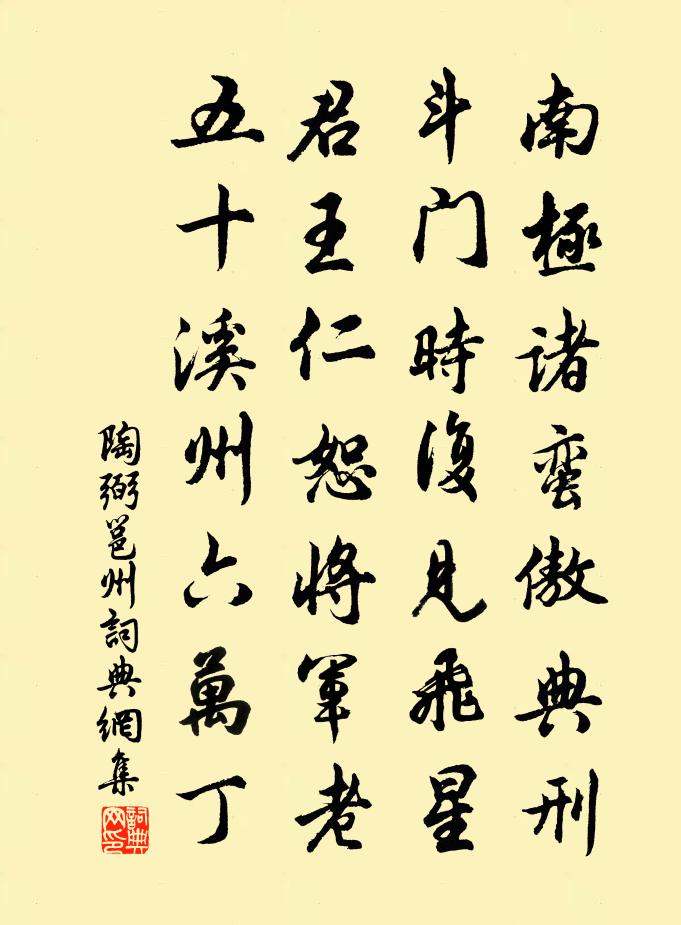 南極诸蛮傲典刑
斗门時復见飛星
君王仁恕将军老
五十溪州六萬丁
陶弼邕州詞典網集
詞典网印